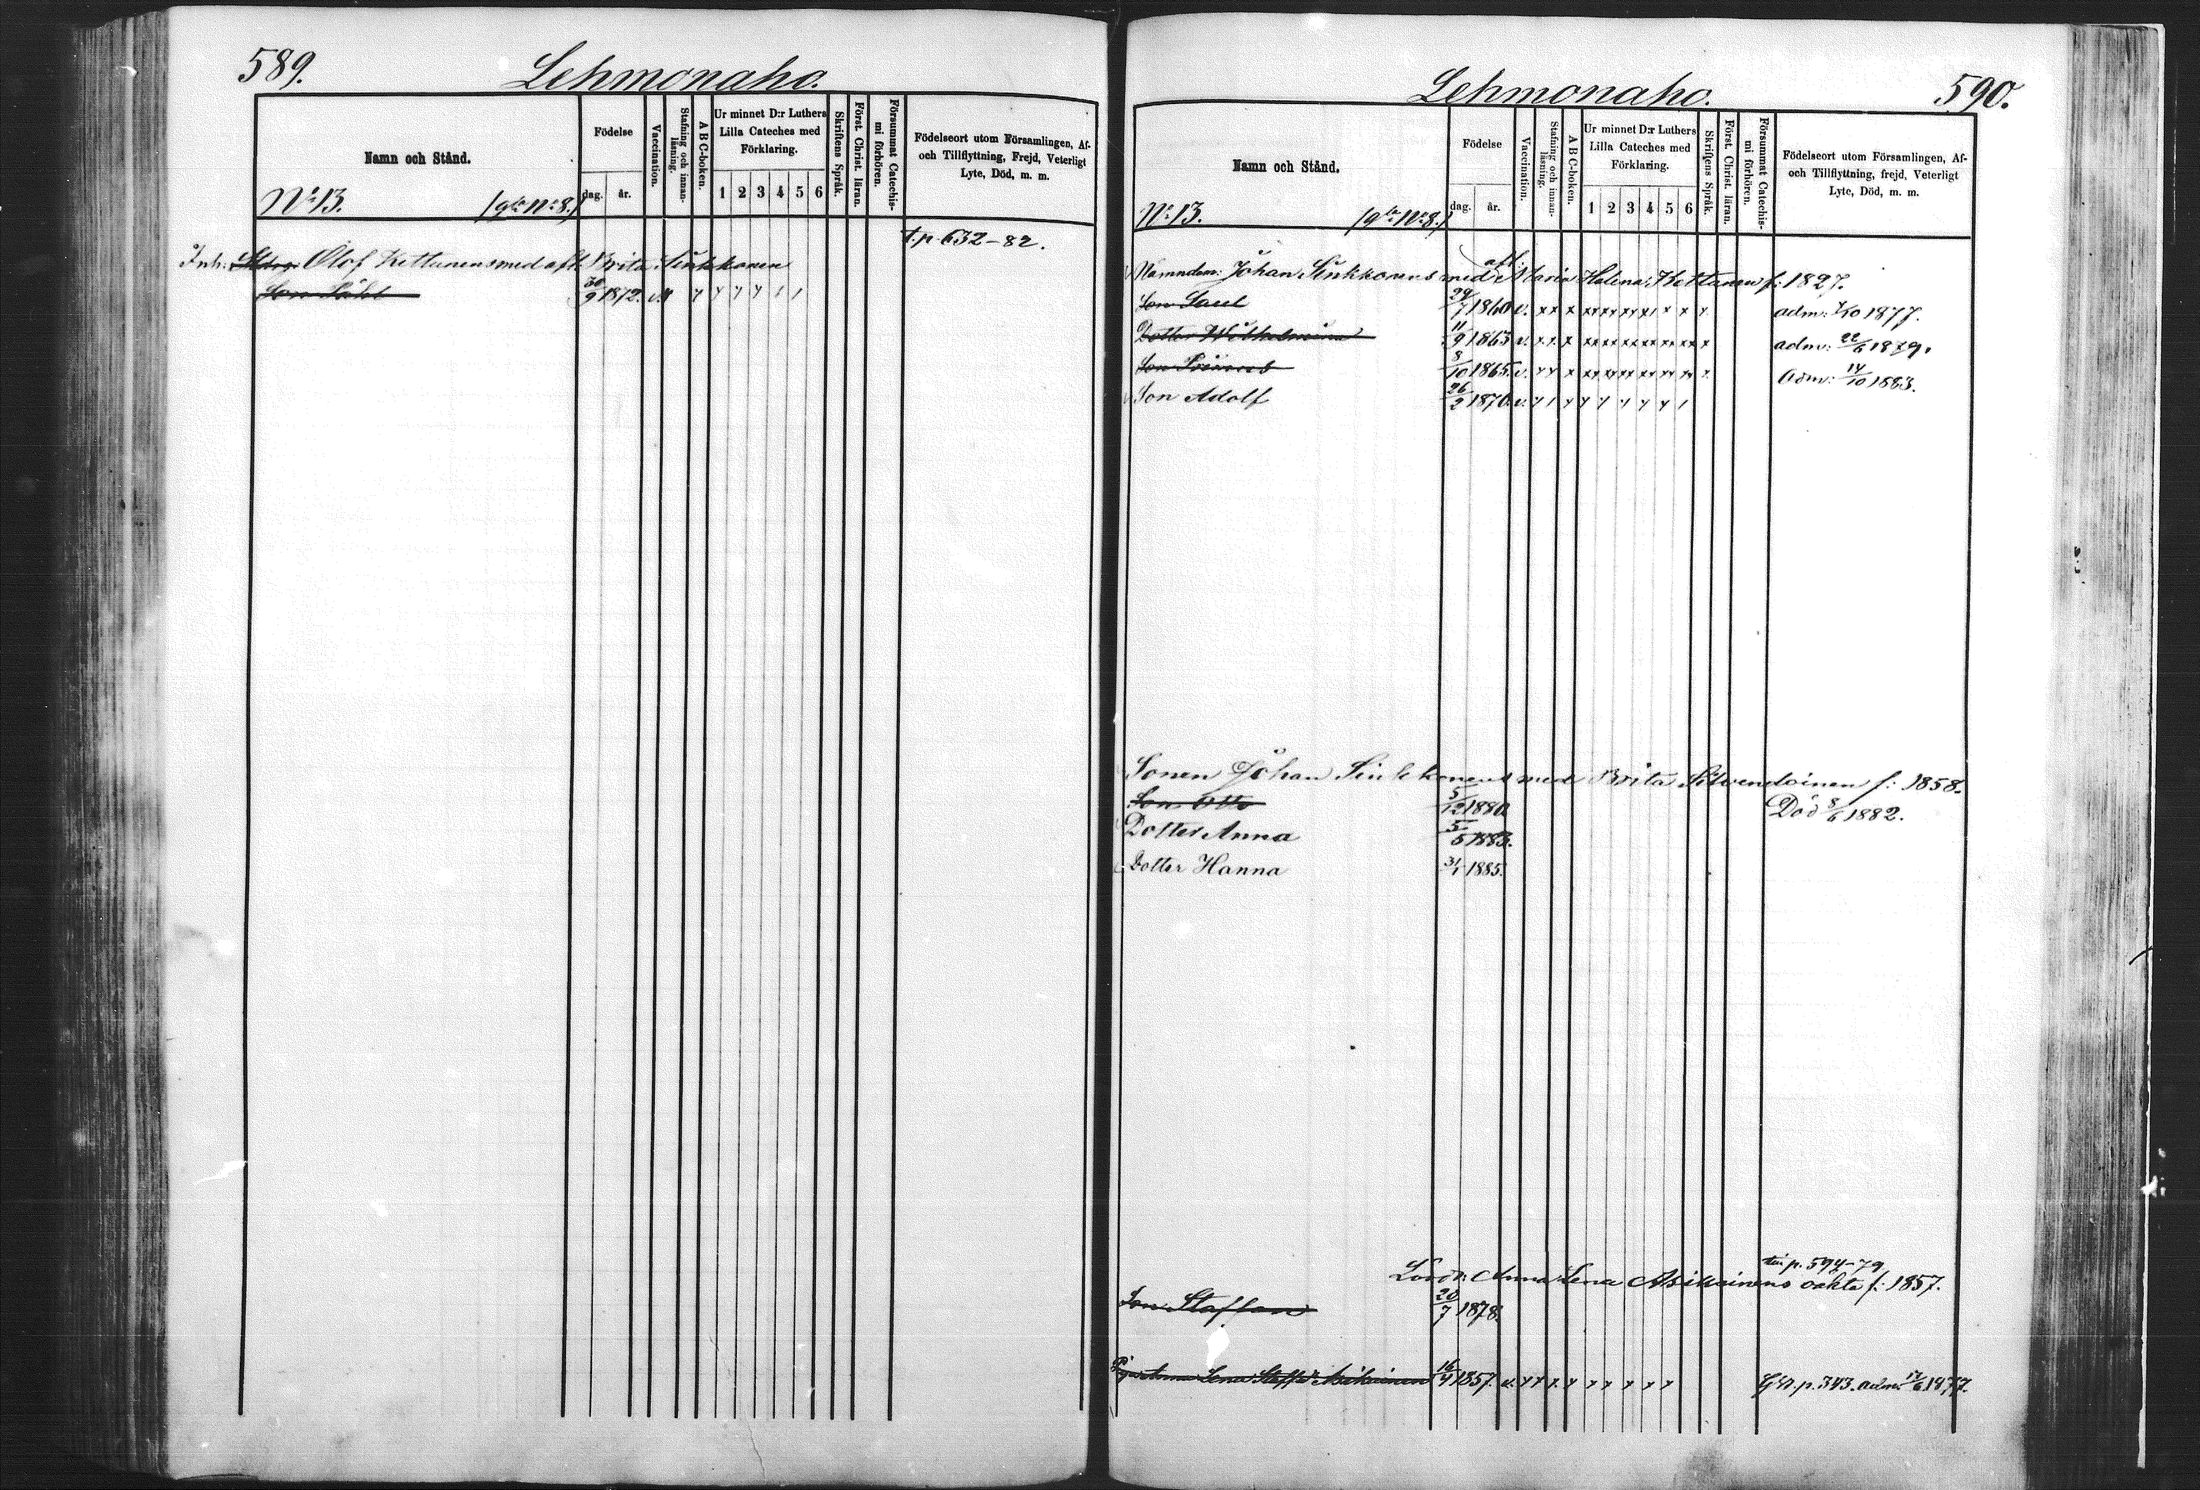 589.
Lehmonaho.
Namn och Stånd.
Födelse
dag. år.
Vaccination.
Stafning och innanläsning.
A B C-boken.
Ur minnet D:r Luthers Lilla Cateches med Förklaring.
1 2 3 4 5 6
Skriftens Språk.
Först. Christ. läran.
Försummat Catechismi förhören.
Födelseort utom Församlingen, Af- och Tillflyttning, Frejd, Veterligt Lyte, Död, m. m.
No 13. (gla No 8.)
t. p. 632-82.
Inh: Olof Kettunens med afl. Brita Sinkkonen
Son Påhl 30/9 1872. v.
590.
Lehmonaho.
Namn och Stånd.
Födelse
dag. år.
Vaccination.
Stafning och innanläsning.
A B C-boken.
Ur minnet D:r Luthers Lilla Cateches med Förklaring.
1 2 3 4 5 6
Skriftens Språk.
Först. Christ. läran.
Försummat Catechismi förhören.
Födelseort utom Församlingen, Af- och Tillflyttning, frejd, Veterligt Lyte, Död, m. m.
No 13. (gla No 8.)
Nämndem: Johan Sinkkonens med afl: Maria Helena Kettunen f: 1827.
Son Saul 29/7 1860 v. adm: 7/10 1877.
Dotter Wilhelmina 11/9 1863 v. adm: 22/6 1879.
Son 8/10 1865. v. Adm: 14/10 1883.
Son Adolf 26/2 1870. v.
Sonen Johan Sinkkonens med Brita Silvendoinen f: 1858.
Son Otto 5/12 1880. Död 8/6 1882.
Dotter Anna 5/5 1883.
Dotter Hanna 31/1 1885.
p. 594-79
Anna Lena Asikainens oäkta f: 1857.
Son Staffan 20/7 1878.
Pigan Anna Lena Staff:dr Asikainen 16/4 1857. v. p. 343. adm: 17/6 1877.